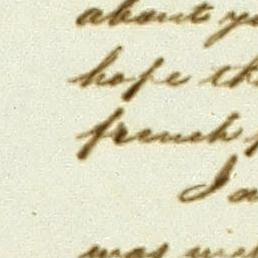 about yo
hope th
french
I a
was